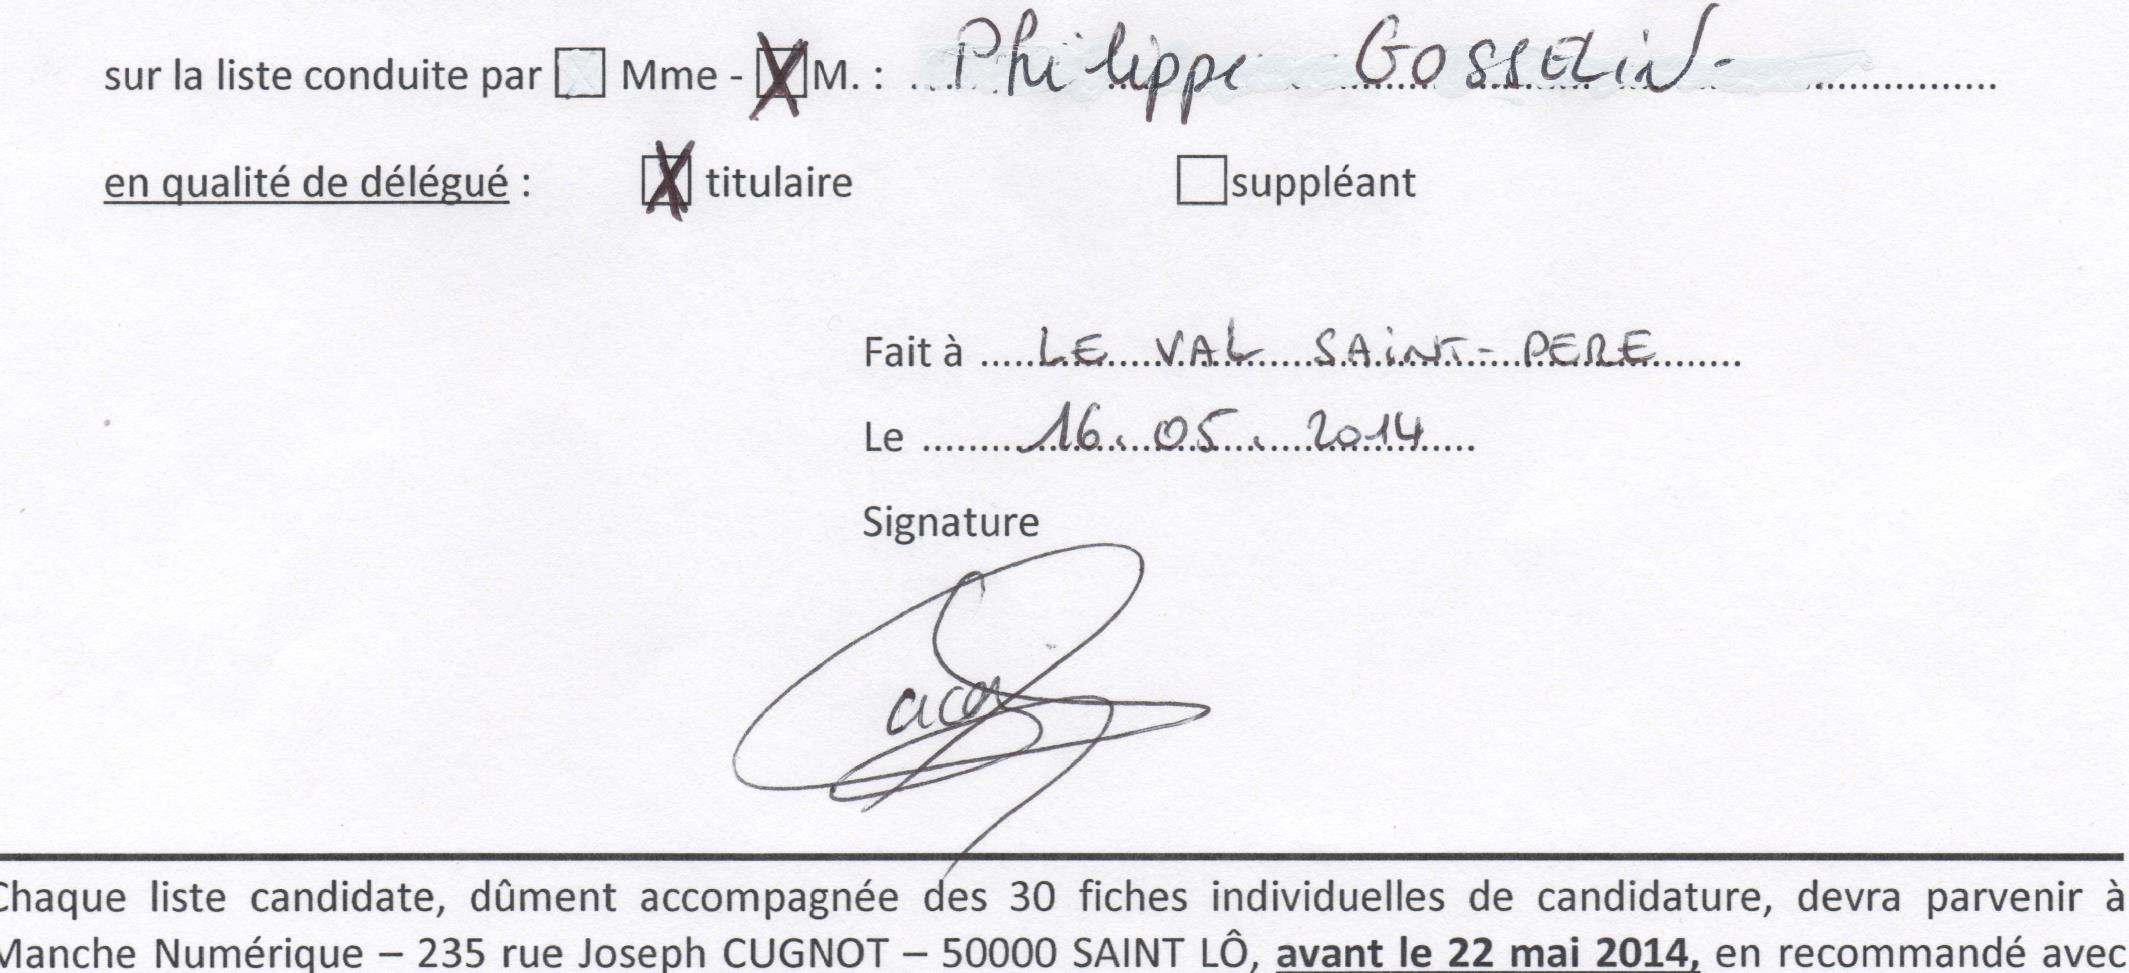 sur la liste conduite par ☐ Mme - ☒ M. : Philippe GOSSELIN-
en qualité de délégué : ☒ titulaire ☐ suppléant
Fait à LE VAL SAINT-PERE
Le 16.05.2014
Signature
Chaque liste candidate, dûment accompagnée des 30 fiches individuelles de candidature, devra parvenir à
Manche Numérique – 235 rue Joseph CUGNOT – 50000 SAINT LÔ, avant le 22 mai 2014, en recommandé avec